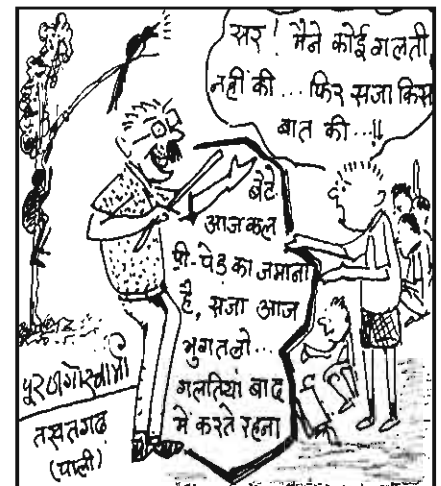 सर! मैने कोई गलती
नहीं की...फिर सजा किस
बात की...!!
बेटे
आजकल
प्री-पेड का जमाना
है, सजा आज
भुगतलो...
गलतियां बाद
में करते रहना
पूरण गोस्वामी
तखतगढ
(पाली)